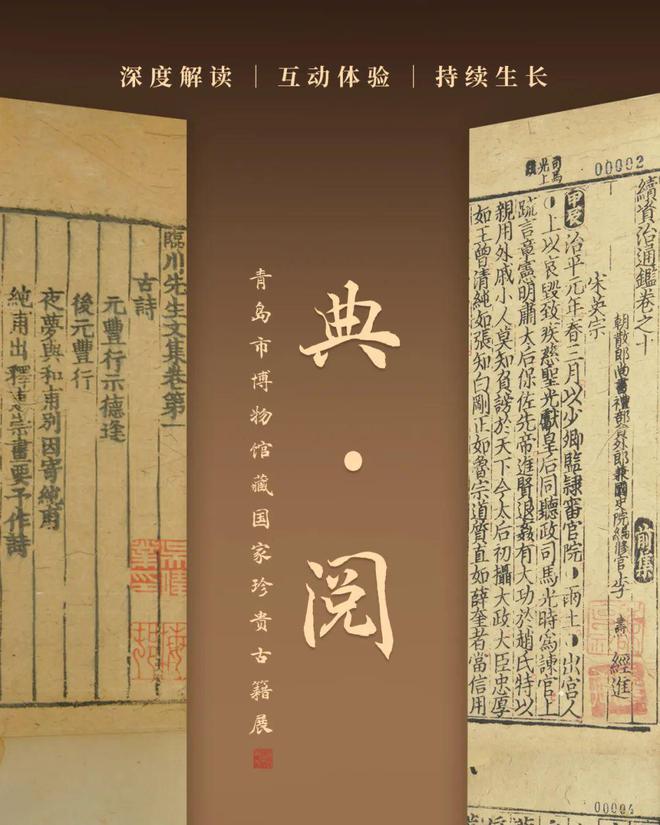 深度解读｜互动体验｜持续生长
典·阅
青岛市博物馆藏国家珍贵古籍展
臨川先生文集卷第一
古詩
元豐行示德逢
後元豐行
夜夢與和甫別因寄純甫
純甫出釋惠崇畫要予作詩
00002
司馬光上
續資治通鑑卷之十
朝散郎尚書禮部員外郎兼國史院編修官李 燾 經進
前集
宋英宗
甲辰 治平元年春三月以少卿監隷審官院 雨土 出宮人
上以哀毀致疾慈聖光獻皇后同聽政司馬光時爲諫官上
疏言章憲明肅太后保佐先帝進賢退姦有大功於趙氏特以
親用外戚小人莫知負謗於天下今太后初攝大政大臣忠厚
如王曾清純如張知白剛正如魯宗道質直如薛奎者當信用
00004